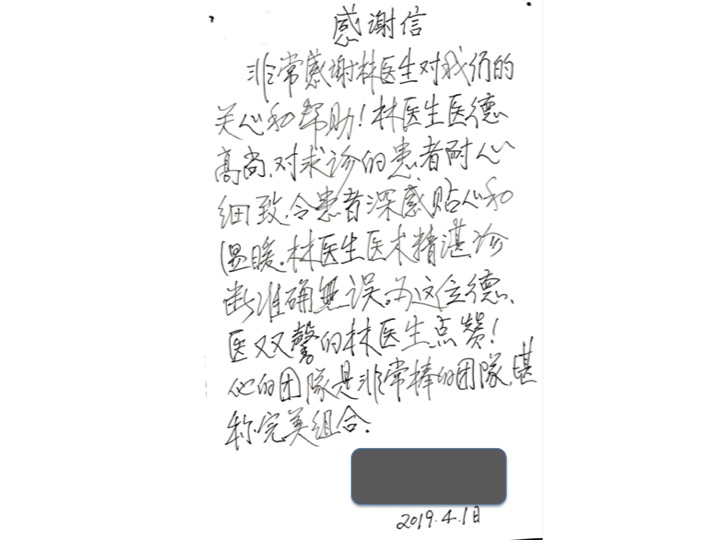 感谢信
非常感谢林医生对我们的
关心和帮助！林医生医德
高尚，对求诊的患者耐心
细致，令患者深感贴心和
温暖。林医生医术精湛诊
断准确无误。为这位德、
医双馨的林医生点赞！
他的团队是非常棒的团队，堪
称完美组合。
2019.4.1日